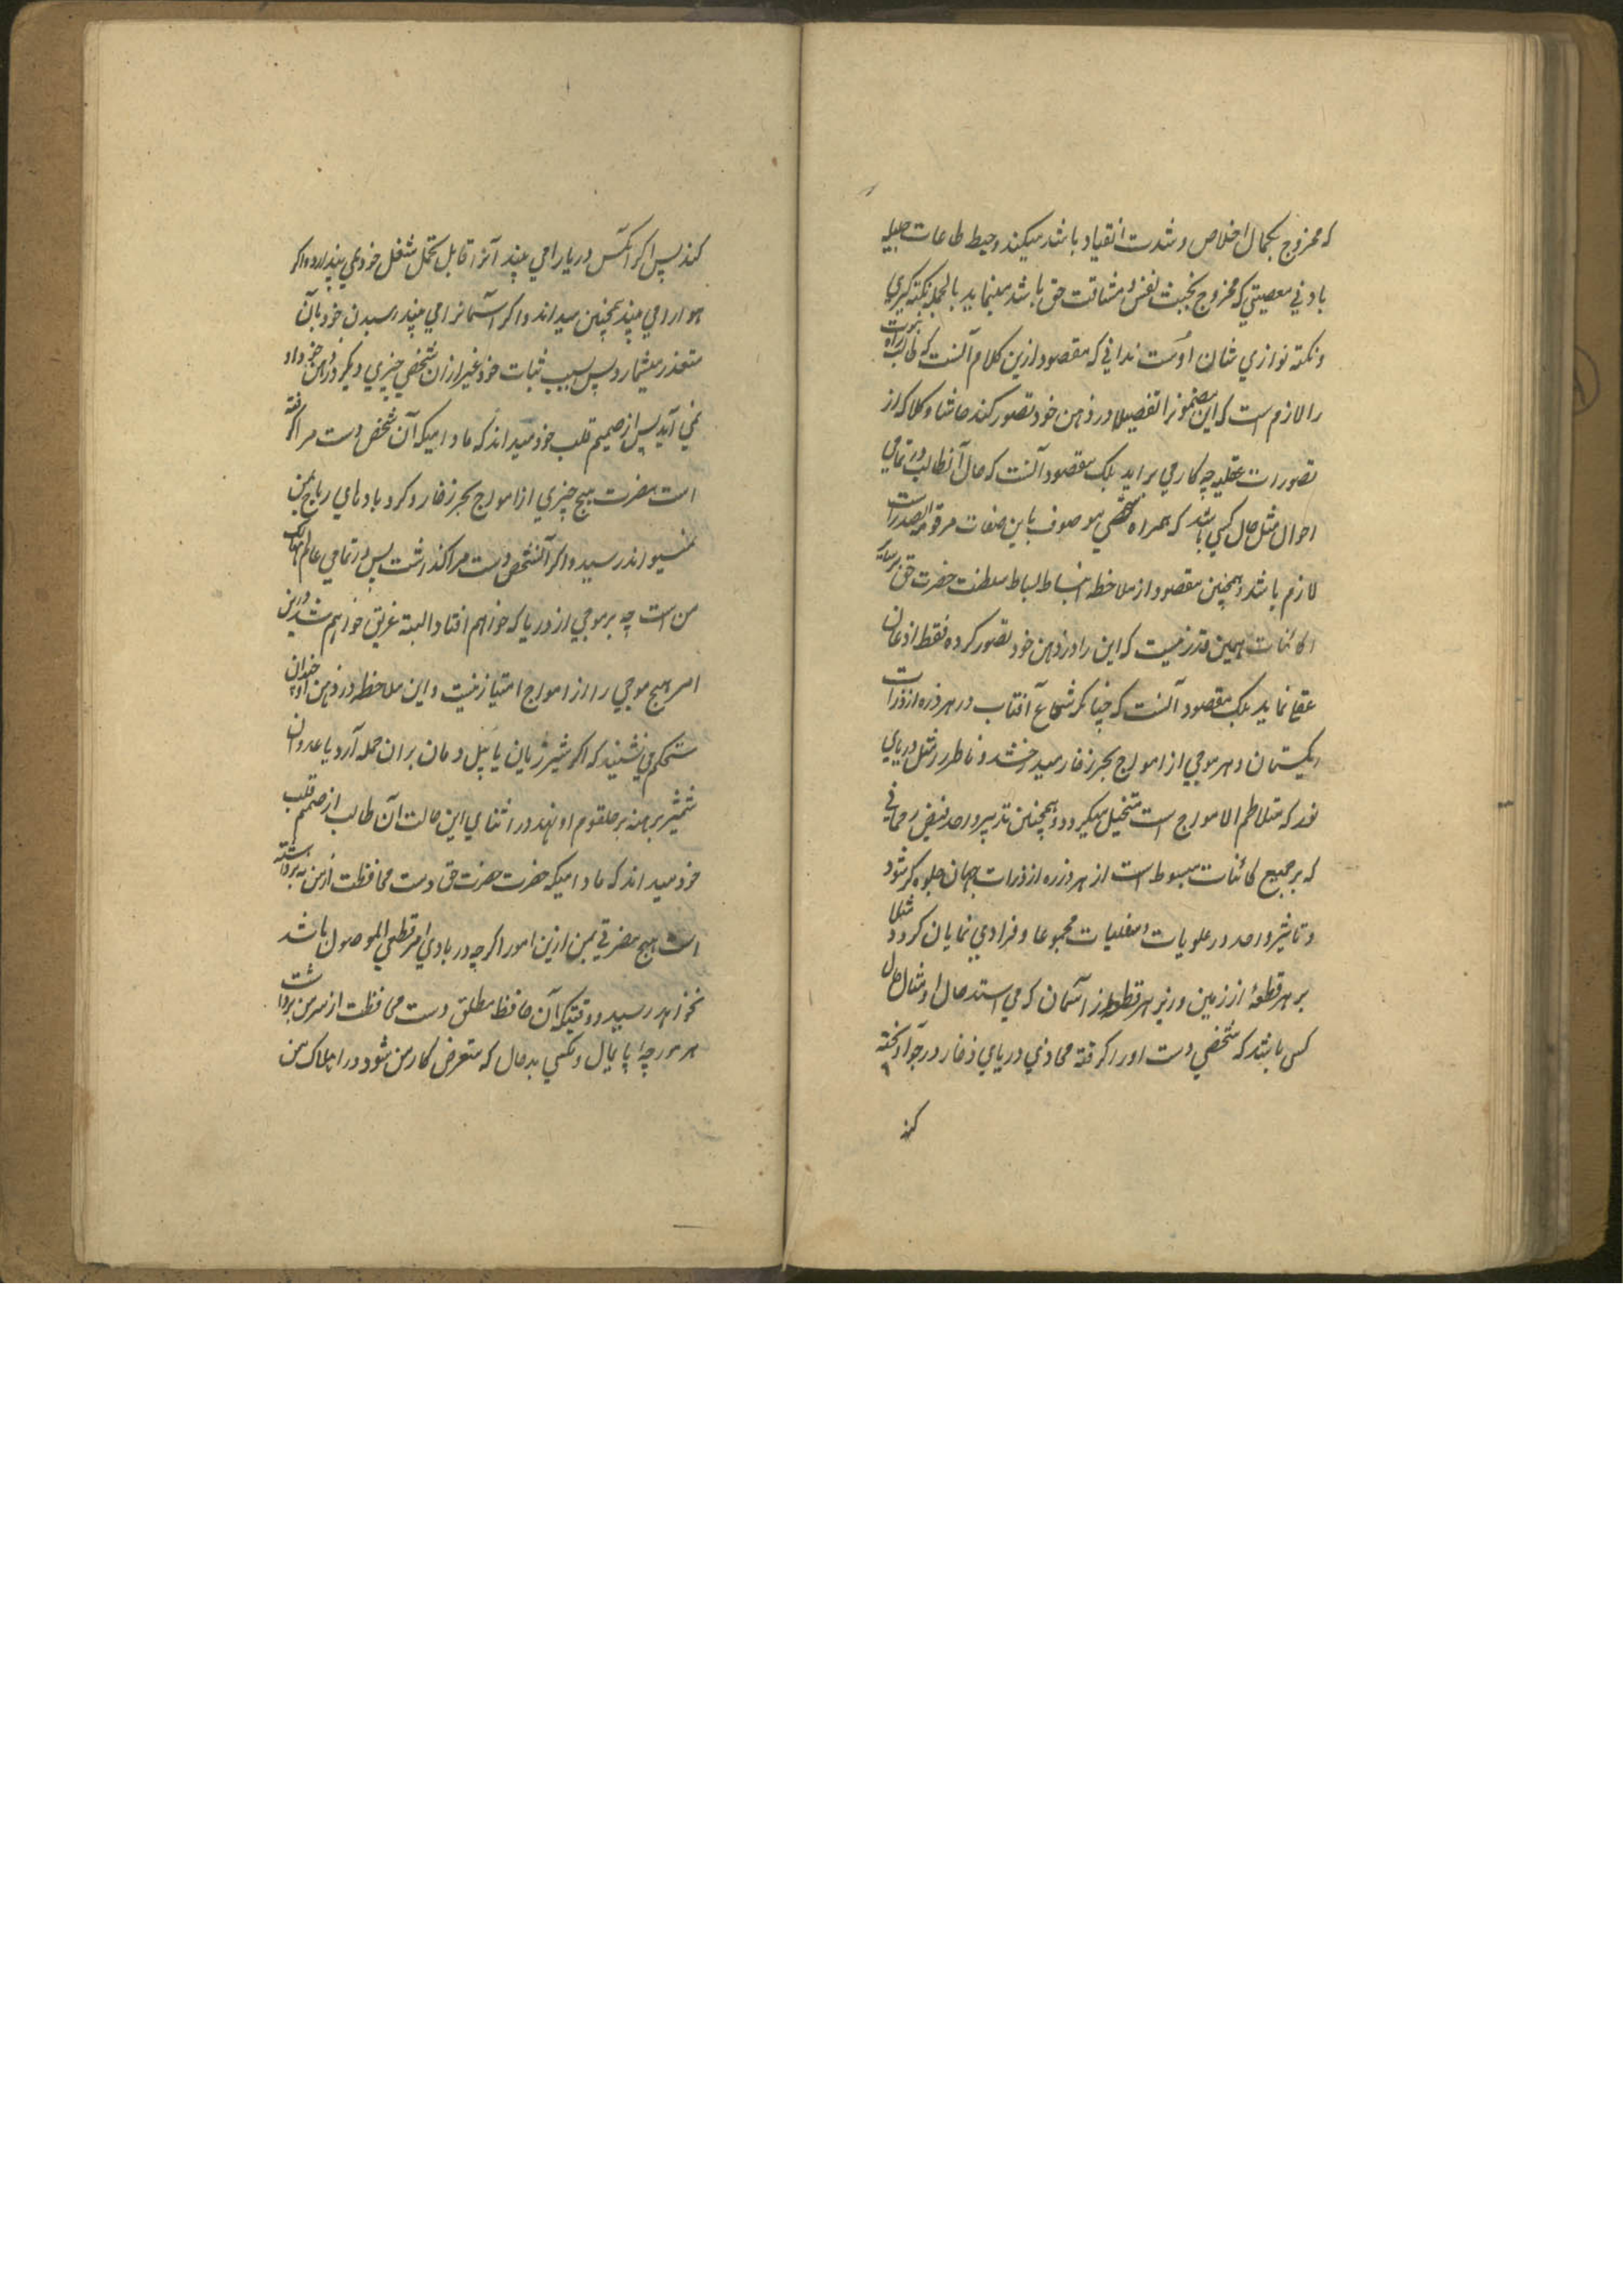 که ممزوج بکمال اخلاص و شدت انقیاد باشد میکند و حبط طاعات جلیله
بادنی معصیتی که ممزوج بخبث نفس و مشاقت حق باشد مینماید بالجمله نکته کیری
و نکته نوازی شان اوست ندانی که مقصود ازین کلام آنست که طالب راه نبوت
را لازم است که این مضمونرا تفصیلا در ذهن خود تصور کند حاشا و کلا که از
تصورات عقلیه چه کار می براید بلکه مقصود آنست که حال آنطالب در تمامی
احوال مثل حال کسی باشد که همراه شخصی موصوف باین صفات مرقومة الصدر است
لازم باشد و همچنین مقصود از ملاحظه انبساط بساط سلطنت حضرت حق بر سایر
کائنات همین قدر نیست که این را در ذهن خود تصور کرده فقط اذعان
عقلی نماید بلکه مقصود آنست که چنانکه شعاع آفتاب در هر ذره از ذرات
ریکستان و هر موجی از امواج بحر زخار میدرخشد و ناظر را مثل دریای
نور که متلاطم الامواج است متخیل میکردد و همچنین تدبیر واحد و فیض رحمانی
که بر جمیع کائنات مبسوط است از هر ذره از ذرات جهان جلوه کر شود
و تاثیر واحد در علویات و سفلیات مجموعا و فرادی نمایان کردد مثلا
بر هر قطعهٔ از زمین و زیر هر قطعه از آسمان که می استد حال او مثال حال
کسی باشد که شخصی دست او را کرفته محاذی دریای ذخار در جو آویخته
کند
کند پس اکر آنکس دریا را می بیند آنرا قابل تحمل ثقل خود نمی پندارد و اکر
هوا را می بیند همچنین میداند و اکر آسمانرا می بیند رسیدن خود بآن
متعذر میشمارد پس سبب ثبات خود غیر ازان شخصی چیزی دیکر در ذهن خود
نمی آید پس از صمیم قلب خود میداند که مادامیکه آن شخص دست مرا کرفته
است مضرت هیچ چیزی از امواج بحر زخار و کردبادهای ریاح بمن
نمیتواند رسید و اکر آنشخص دست مرا کذاشت پس در تمامی عالم مهالک
من است چه بر موجی از دریا که خواهم افتاد البته غریق خواهم شد درین
امر هیچ موجی را از امواج امتیاز نیست و این ملاحظه در ذهن او چندان
مستحکم می نشیند که اکر شیر ژیان یا پیل دمان بران حمله آرد یا عدو ان
شمشیر برهنه بر حلقوم او نهد در اثنای این حالت آن طالب از صمیم قلب
خود میداند که مادامیکه حضرت حضرت حق دست محافظت از من نه برداشته
است هیچ مضرتی بمن ازین امور اکرچه در بادی امر قطعی الموصول باشد
نخواهد رسید و وقتیکه آن حافظ مطلق دست محافظت از سر من برداشت
هر مورچه پایمال و مکسی بدحال که متعرض کار من شود در اهلاک من